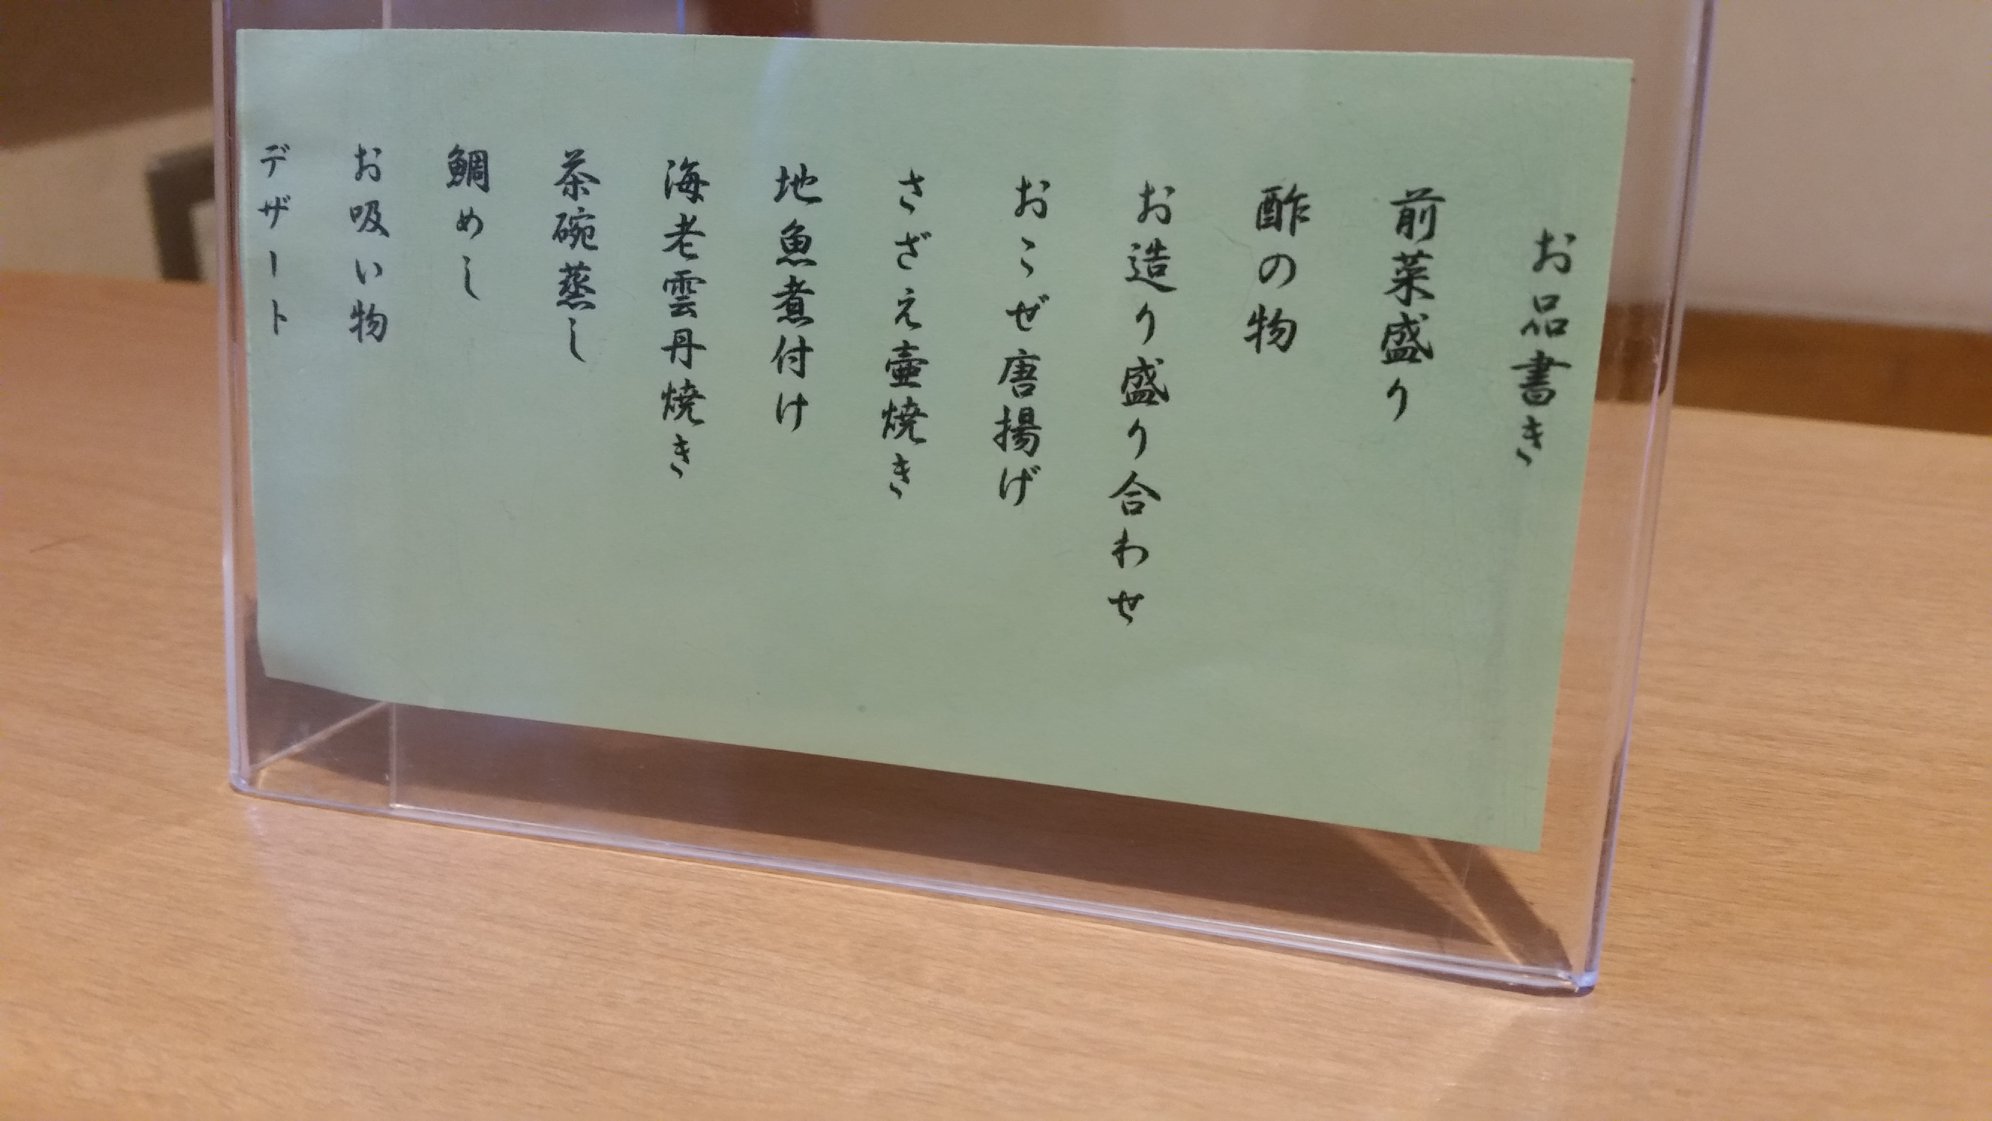 お品書き
前菜盛り
酢の物
お造り盛り合わせ
おこぜ唐揚げ
さざえ壷焼き
地魚煮付け
海老雲丹焼き
茶碗蒸し
鯛めし
お吸い物
デザート